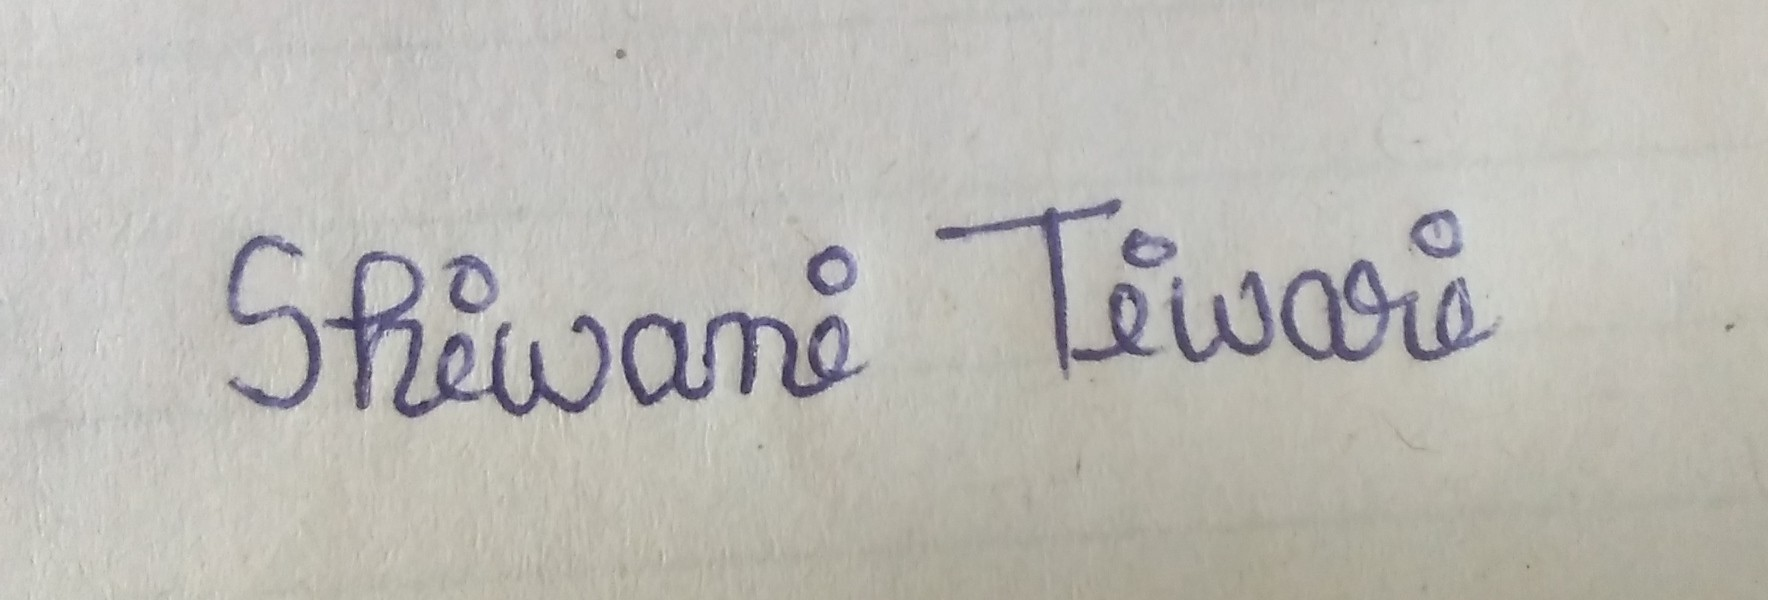 Shiwani Tiwari